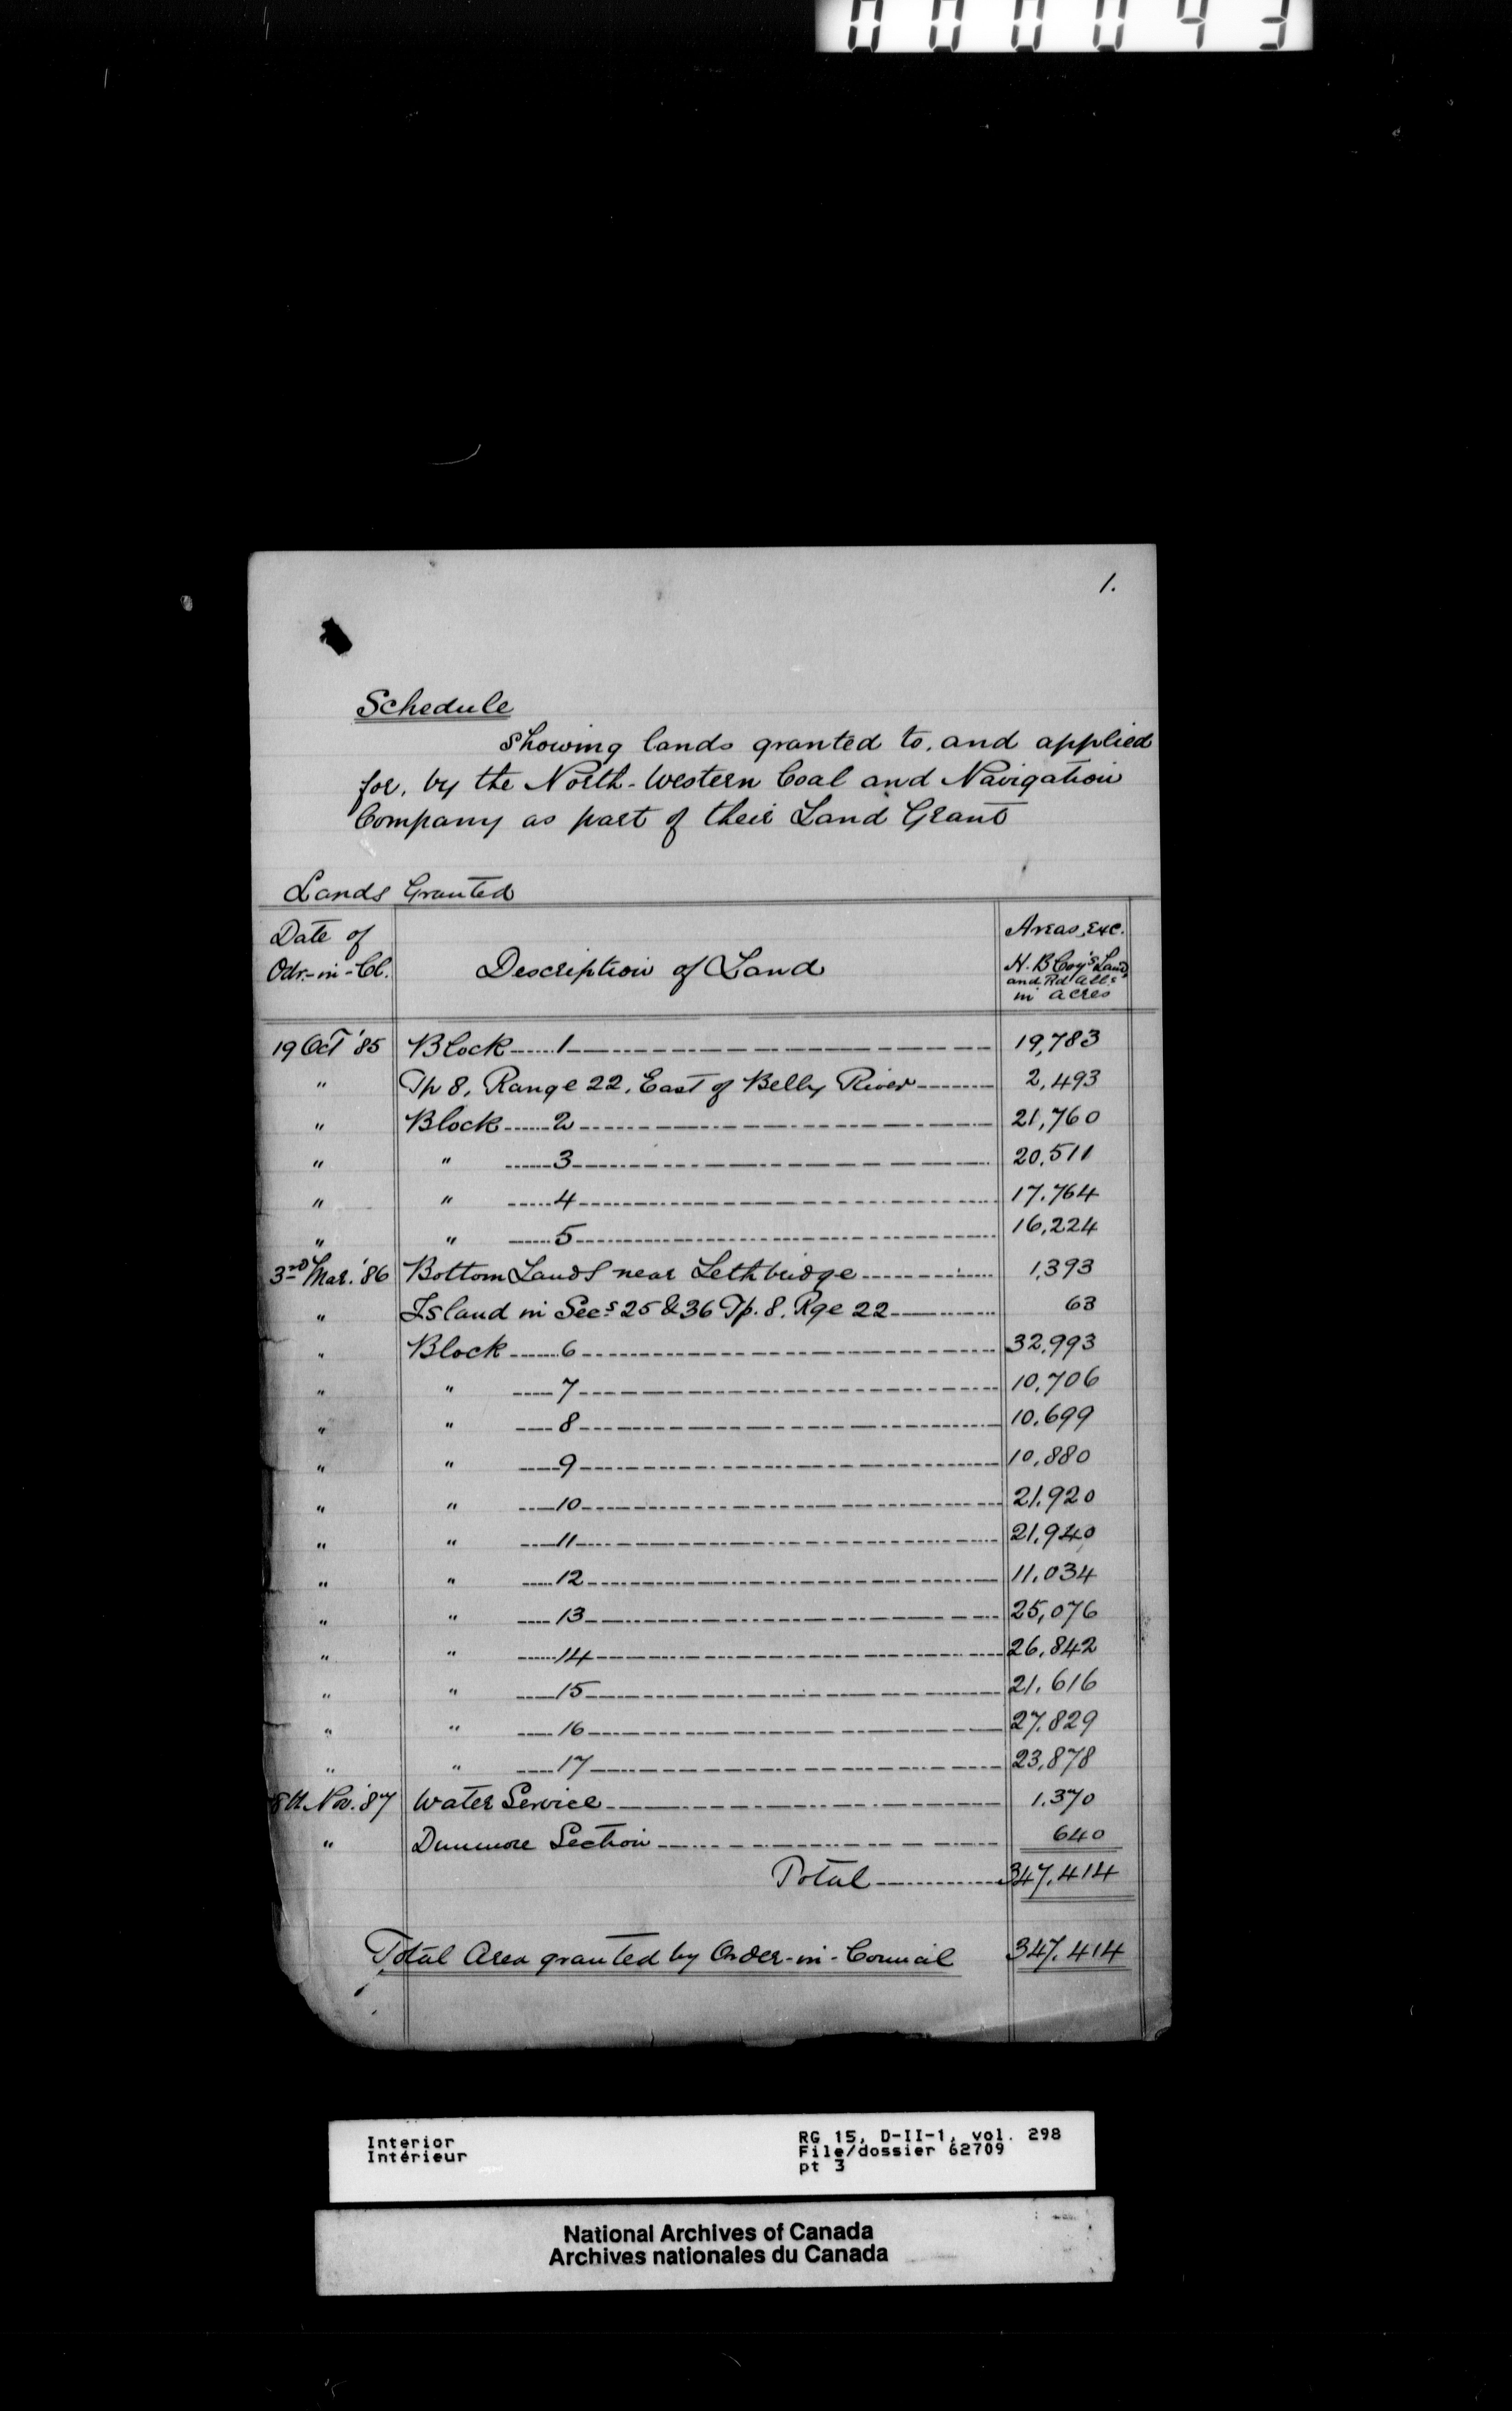 000043
1.
Schedule
Showing lands granted to, and applied
for, by the North-Western Coal and Navigation
Company as part of their Land Grant
Lands Granted
Date of
Odr.-in-Cl.
Description of Land
Areas, exc.
H. B Coy's Land,
and Rd All.s
in acres
19 Oct '85 Block 1 19,783
" Tp 8, Range 22, East of Belly River 2,493
" Block 2 21,760
" " 3 20,511
" " 4 17,764
" " 5 16,224
3rd Mar. '86 Bottom Lands near Lethbridge 1,393
" Island in Secs 25 & 36 Tp. 8. Rge 22 63
" Block 6 32,993
" " 7 10,706
" " 8 10,699
" " 9 10,880
" " 10 21,920
" " 11 21,940
" " 12 11,034
" " 13 25,076
" " 14 26,842
" " 15 21,616
" " 16 27,829
" " 17 23,878
8th Nov. '87 Water Service 1,370
" Dunmore Section 640
Total 347,414
Total Area granted by Order-in-Council 347,414
Interior
Intérieur
RG 15, D-II-1, vol. 298
File/dossier 62709
pt 3
National Archives of Canada
Archives nationales du Canada